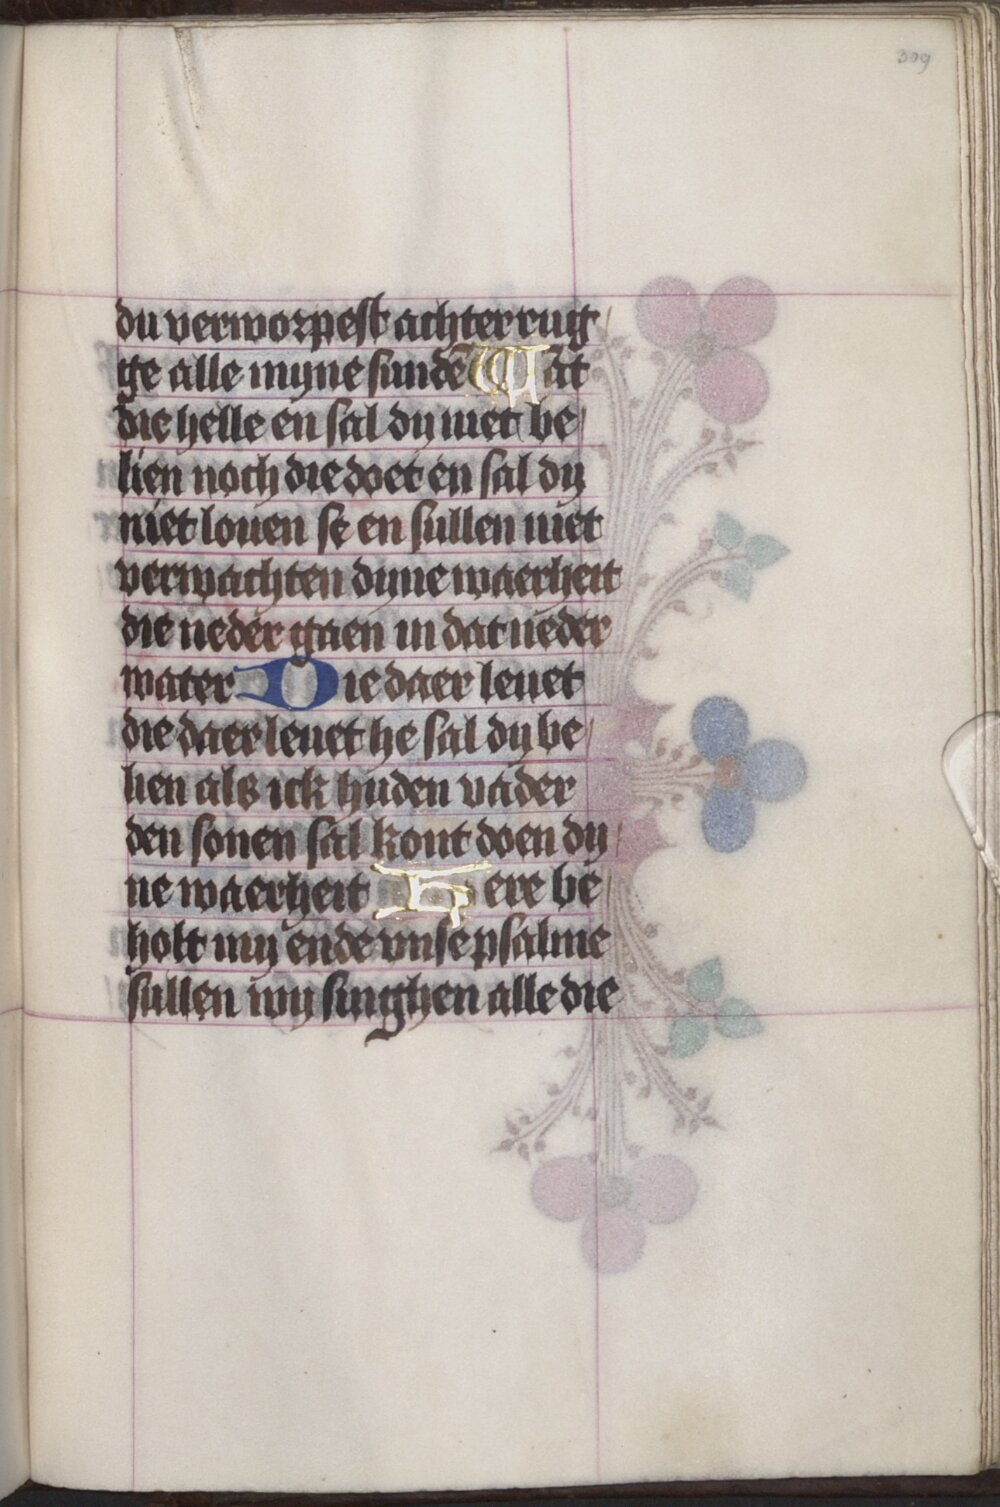 309
du verworpest achterrug
ge alle myne sundē Wāt
die helle en sal dy niet be
lien noch die doet en sal dy
niet louen se en sullen niet
verwachten dyne waerheit
die neder gaen in dat neder
water Die daer leuet
die daer leuet he sal dy be
lien als ick huden vader
den sonen sal kont doen dy
ne waerheit Here be
holt my ende vnse psalme
sullen wy singhen alle die